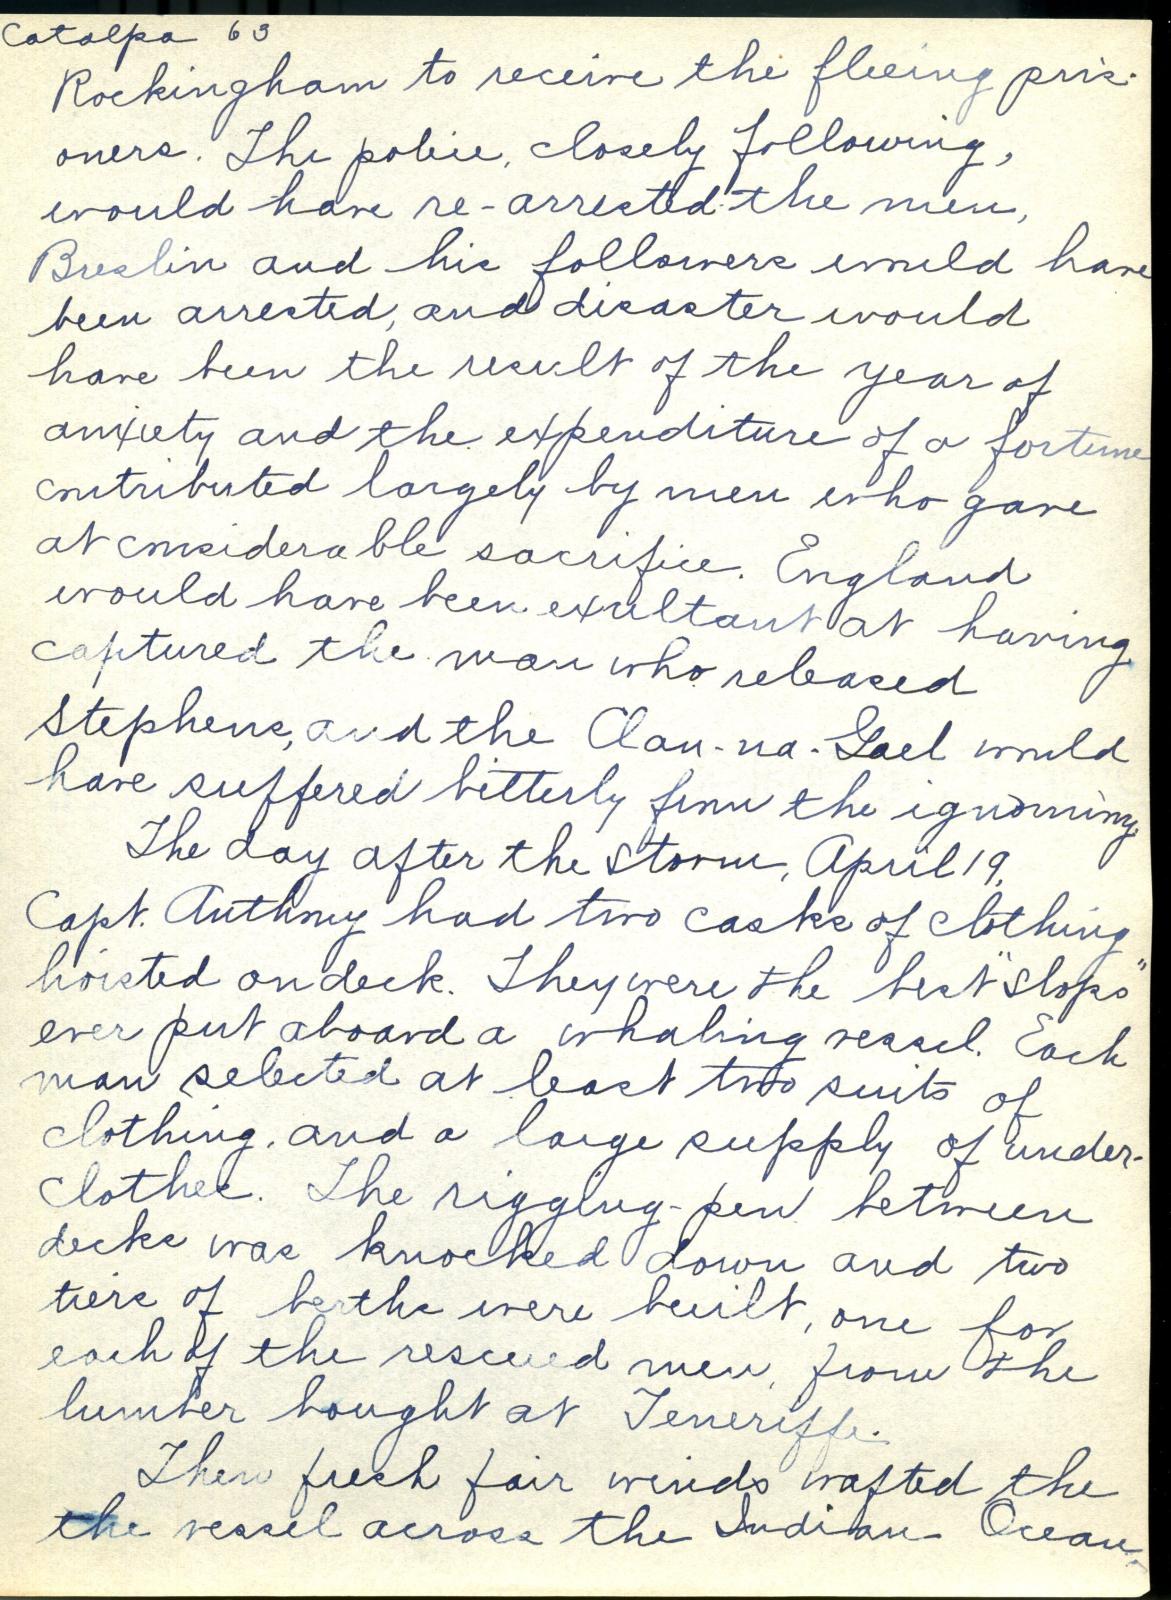 Catalpa 63
Rockingham to receive the fleeing pris-
oners. The police, closely following,
would have re-arrested the men,
Breslin and his followers would have
been arrested, and disaster would
have been the result of the year of
anxiety and the expenditure of a fortune
contributed largely by men who gave
at considerable sacrifice. England
would have been exultant at having
captured the man who released
Stephens, and the Clan-na-Gael would
have suffered bitterly from the ignominy.
The day after the storm, April 19,
Capt. Anthony had two casks of clothing
hoisted on deck. They were the best "slops"
ever put aboard a whaling vessel. Each
man selected at least two suits of
clothing, and a large supply of under-
clothes. The rigging-pen between
decks was knocked down and two
tiers of berths were built, one for
each of the rescued men, from the
lumber bought at Teneriffe.
Then fresh fair winds wafted the
the vessel across the Indian Ocean,